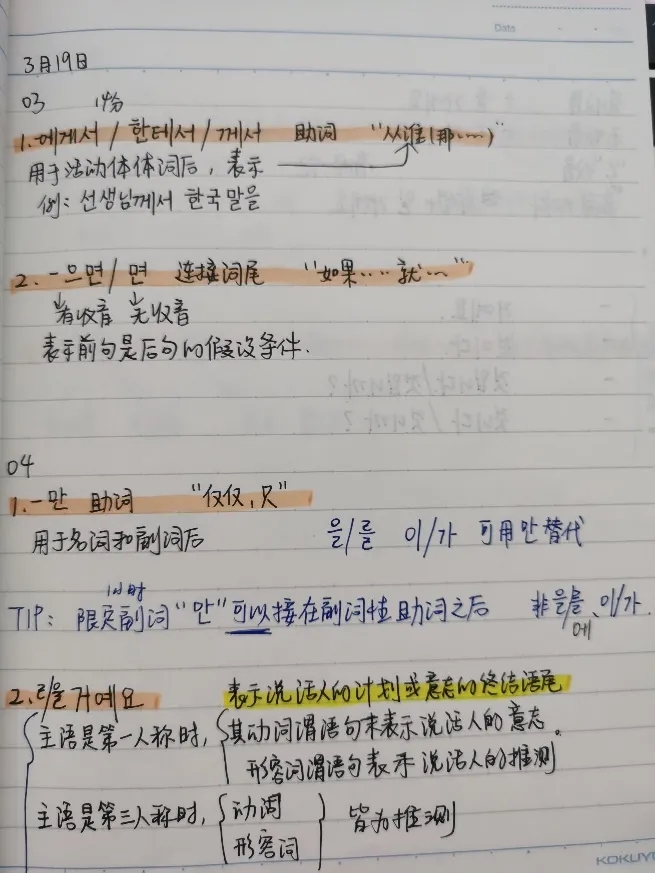 Date
3月19日
03
1. 에게서/한테서/께서 助词 "从谁(那……)"
用于活动体体词后，表示
例：선생님께서 한국말을
2. -으면/면 连接词尾 "如果……就…"
有收音 无收音
表示前句是后句的假设条件.
04
1. -만 助词 "仅仅，只"
用于名词和副词后 을/를 이/가 可用만替代
TIP: 限定副词"만"可以接在副词性助词之后 非을/를、이/가.
에
2. ㄹ/을 거예요 表示说话人的计划或意志的终结语尾
主语是第一人称时, 其动词谓语句末表示说话人的意志。
形容词谓语句表示说话人的推测
主语是第三人称时, 动词 皆为推测
形容词
KOKUYO